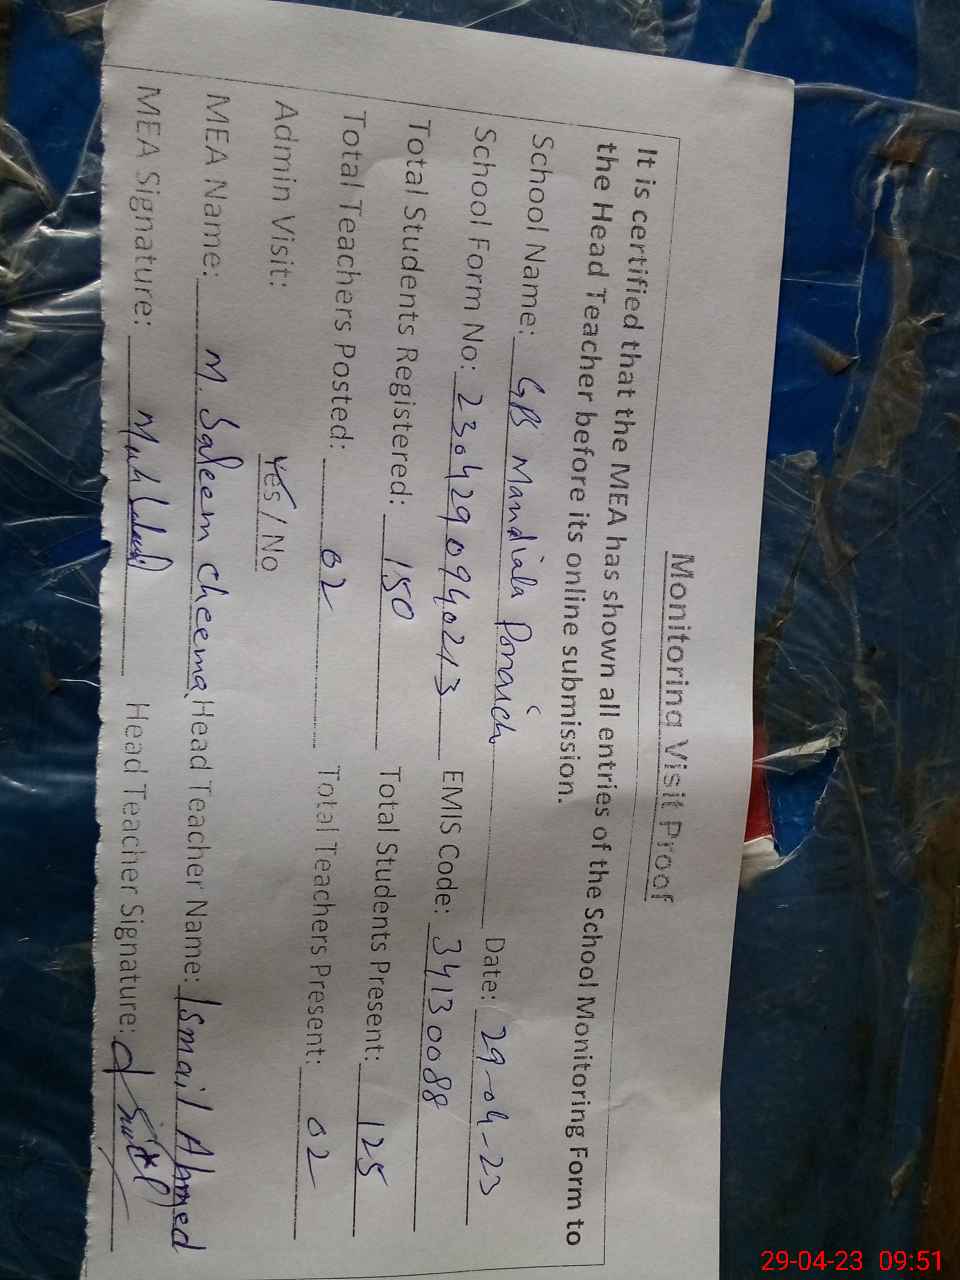 Monitoring Visit Proof
It is certified that the MEA has shown all entries of the School Monitoring Form to
the Head Teacher before its online submission.
School Name: GPS Mandiala Poraich Date: 29-04-23
School Form No: 2304290940213 EMIS Code: 34130088
Total Students Registered: 150 Total Students Present: 125
Total Teachers Posted: 02 Total Teachers Present: 02
Admin Visit: Yes / No
MEA Name: M. Saleem Cheema Head Teacher Name: Ismail Ahmed
MEA Signature: Head Teacher Signature:
29-04-23 09:51